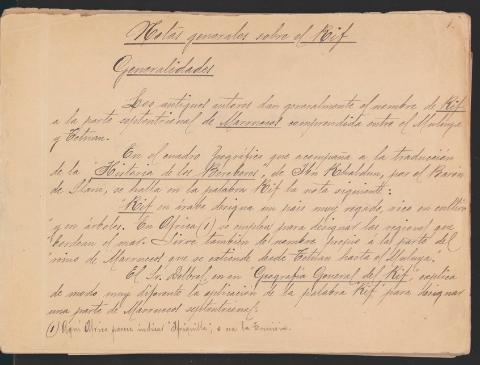 Notas generales sobre el Rif
Generalidades
Los antiguos autores dan generalmente el nombre de Rif
a la parte septentrional de Marruecos comprendida entre el Muluya
y Tetuan.
En el cuadro geográfico que acompaña a la traducción
de la "Historia de los Bereberes", de Ibn Khaldun, por el Barón
de Slane, se halla en la palabra Rif la nota siguiente:
"Rif en árabe designa un pais muy regado, rico en cultivo
"y en árboles. En Africa (1) se emplea para designar las regiones que
"bordean el mar. Sirve también de nombre propio a la parte del
"reino de Marruecos que se extiende desde Tetuan hasta el Muluya."
El Sr. en su "Geografía General del Rif," explica
de modo muy diferente la aplicación de la palabra "Rif" para designar
una parte de Marruecos septentrional:
(1) Aquí Africa parece indicar "Ifrikilla", o sea la